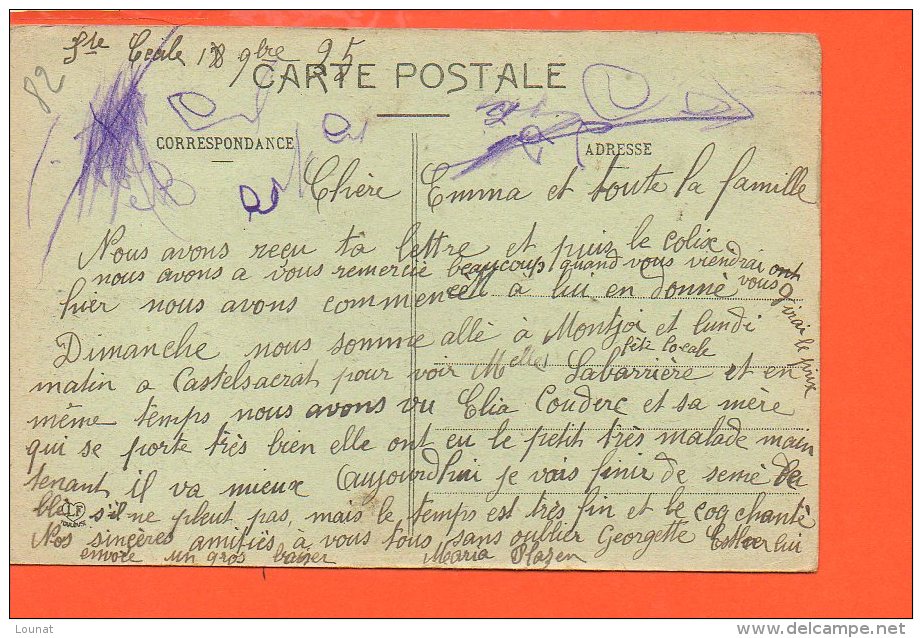 82
Ste Cecile 18 9bre 25
CARTE POSTALE
CORRESPONDANCE
ADRESSE
Chère Emma et toute la famille
Nous avons reçu ta lettre et puiz le colix
nous avons a vous remercie beaucoup quand vous viendrai ont
vous dirai le prix
hier nous avons commencé à lui en donné
Dimanche nous somme allé à Montjoi et lundi
fête locale
matin a Castelsacrat pour voir Melles Labarrière et en
même temps nous avons vu Elia Couderc et sa mère
qui se porte très bien elle ont eu le petit très malade main
tenant il va mieux Aujourd'hui je vais finir de semé de
blé s'il ne pleut pas, mais le temps est très fin et le coq chante
LF
TOULOUSE
Nos sincères amitiés à vous tous sans oublier Georgette Esther lui
envoie un gros baiser Maria
Lounat
www.delcampe.net